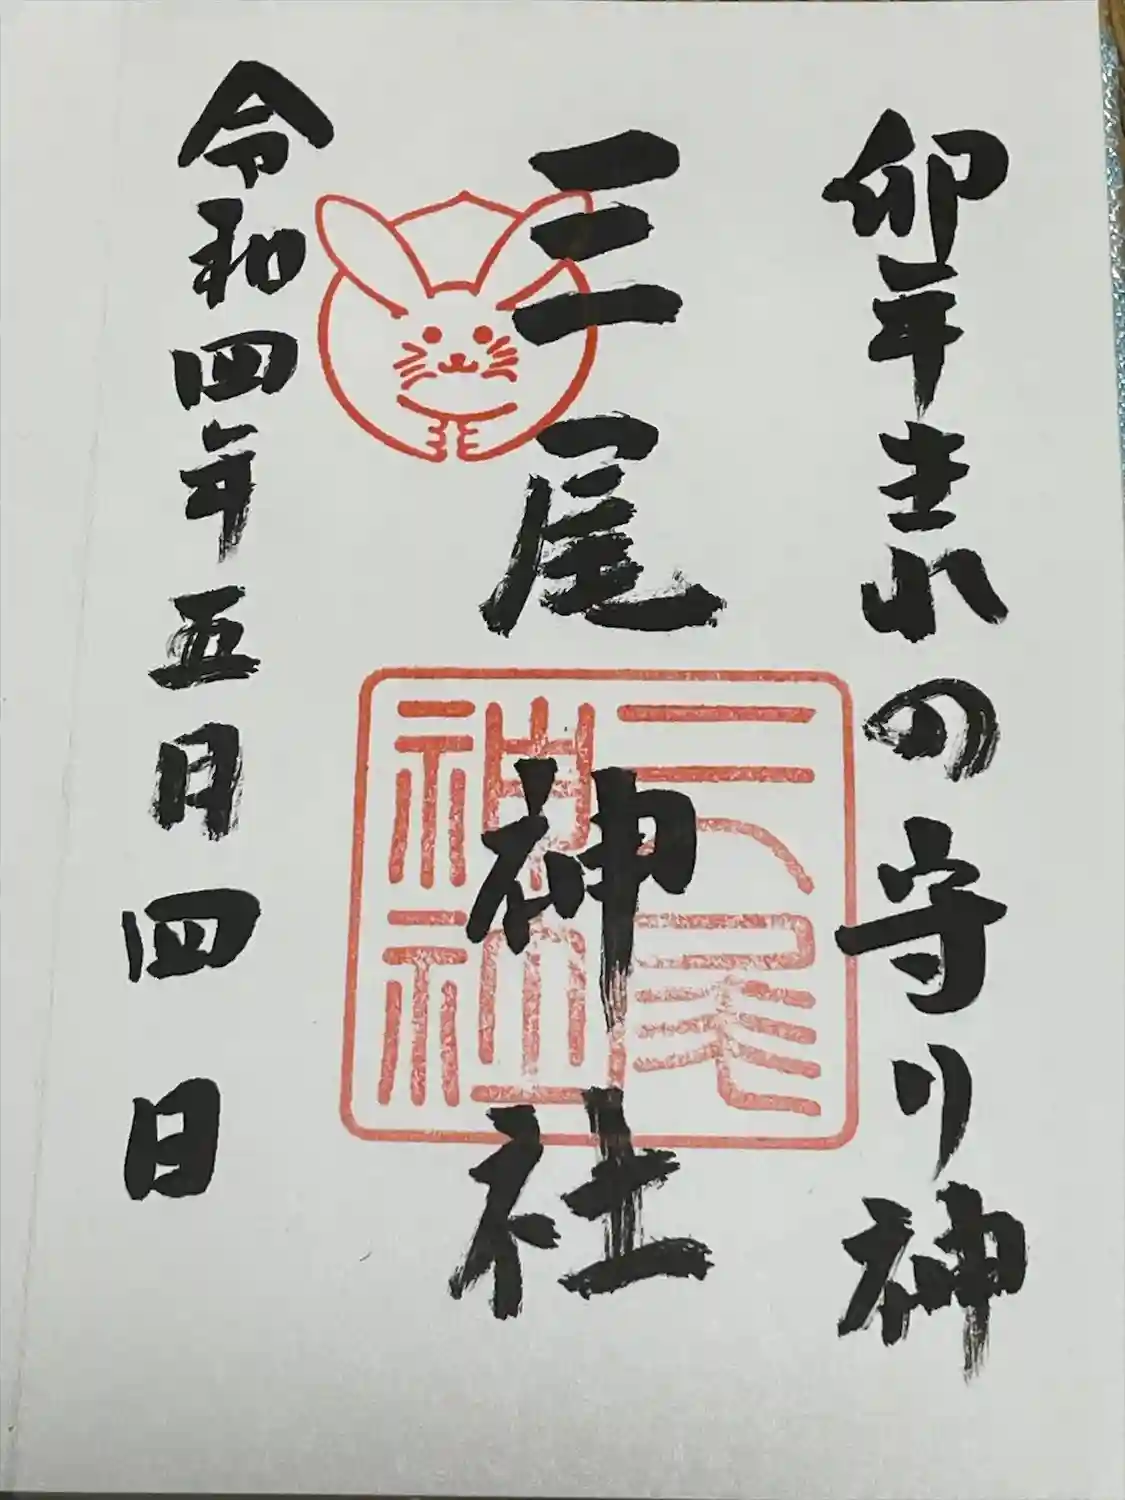 卯年生れの守り神
三尾神社
三尾神社
令和四年五月四日